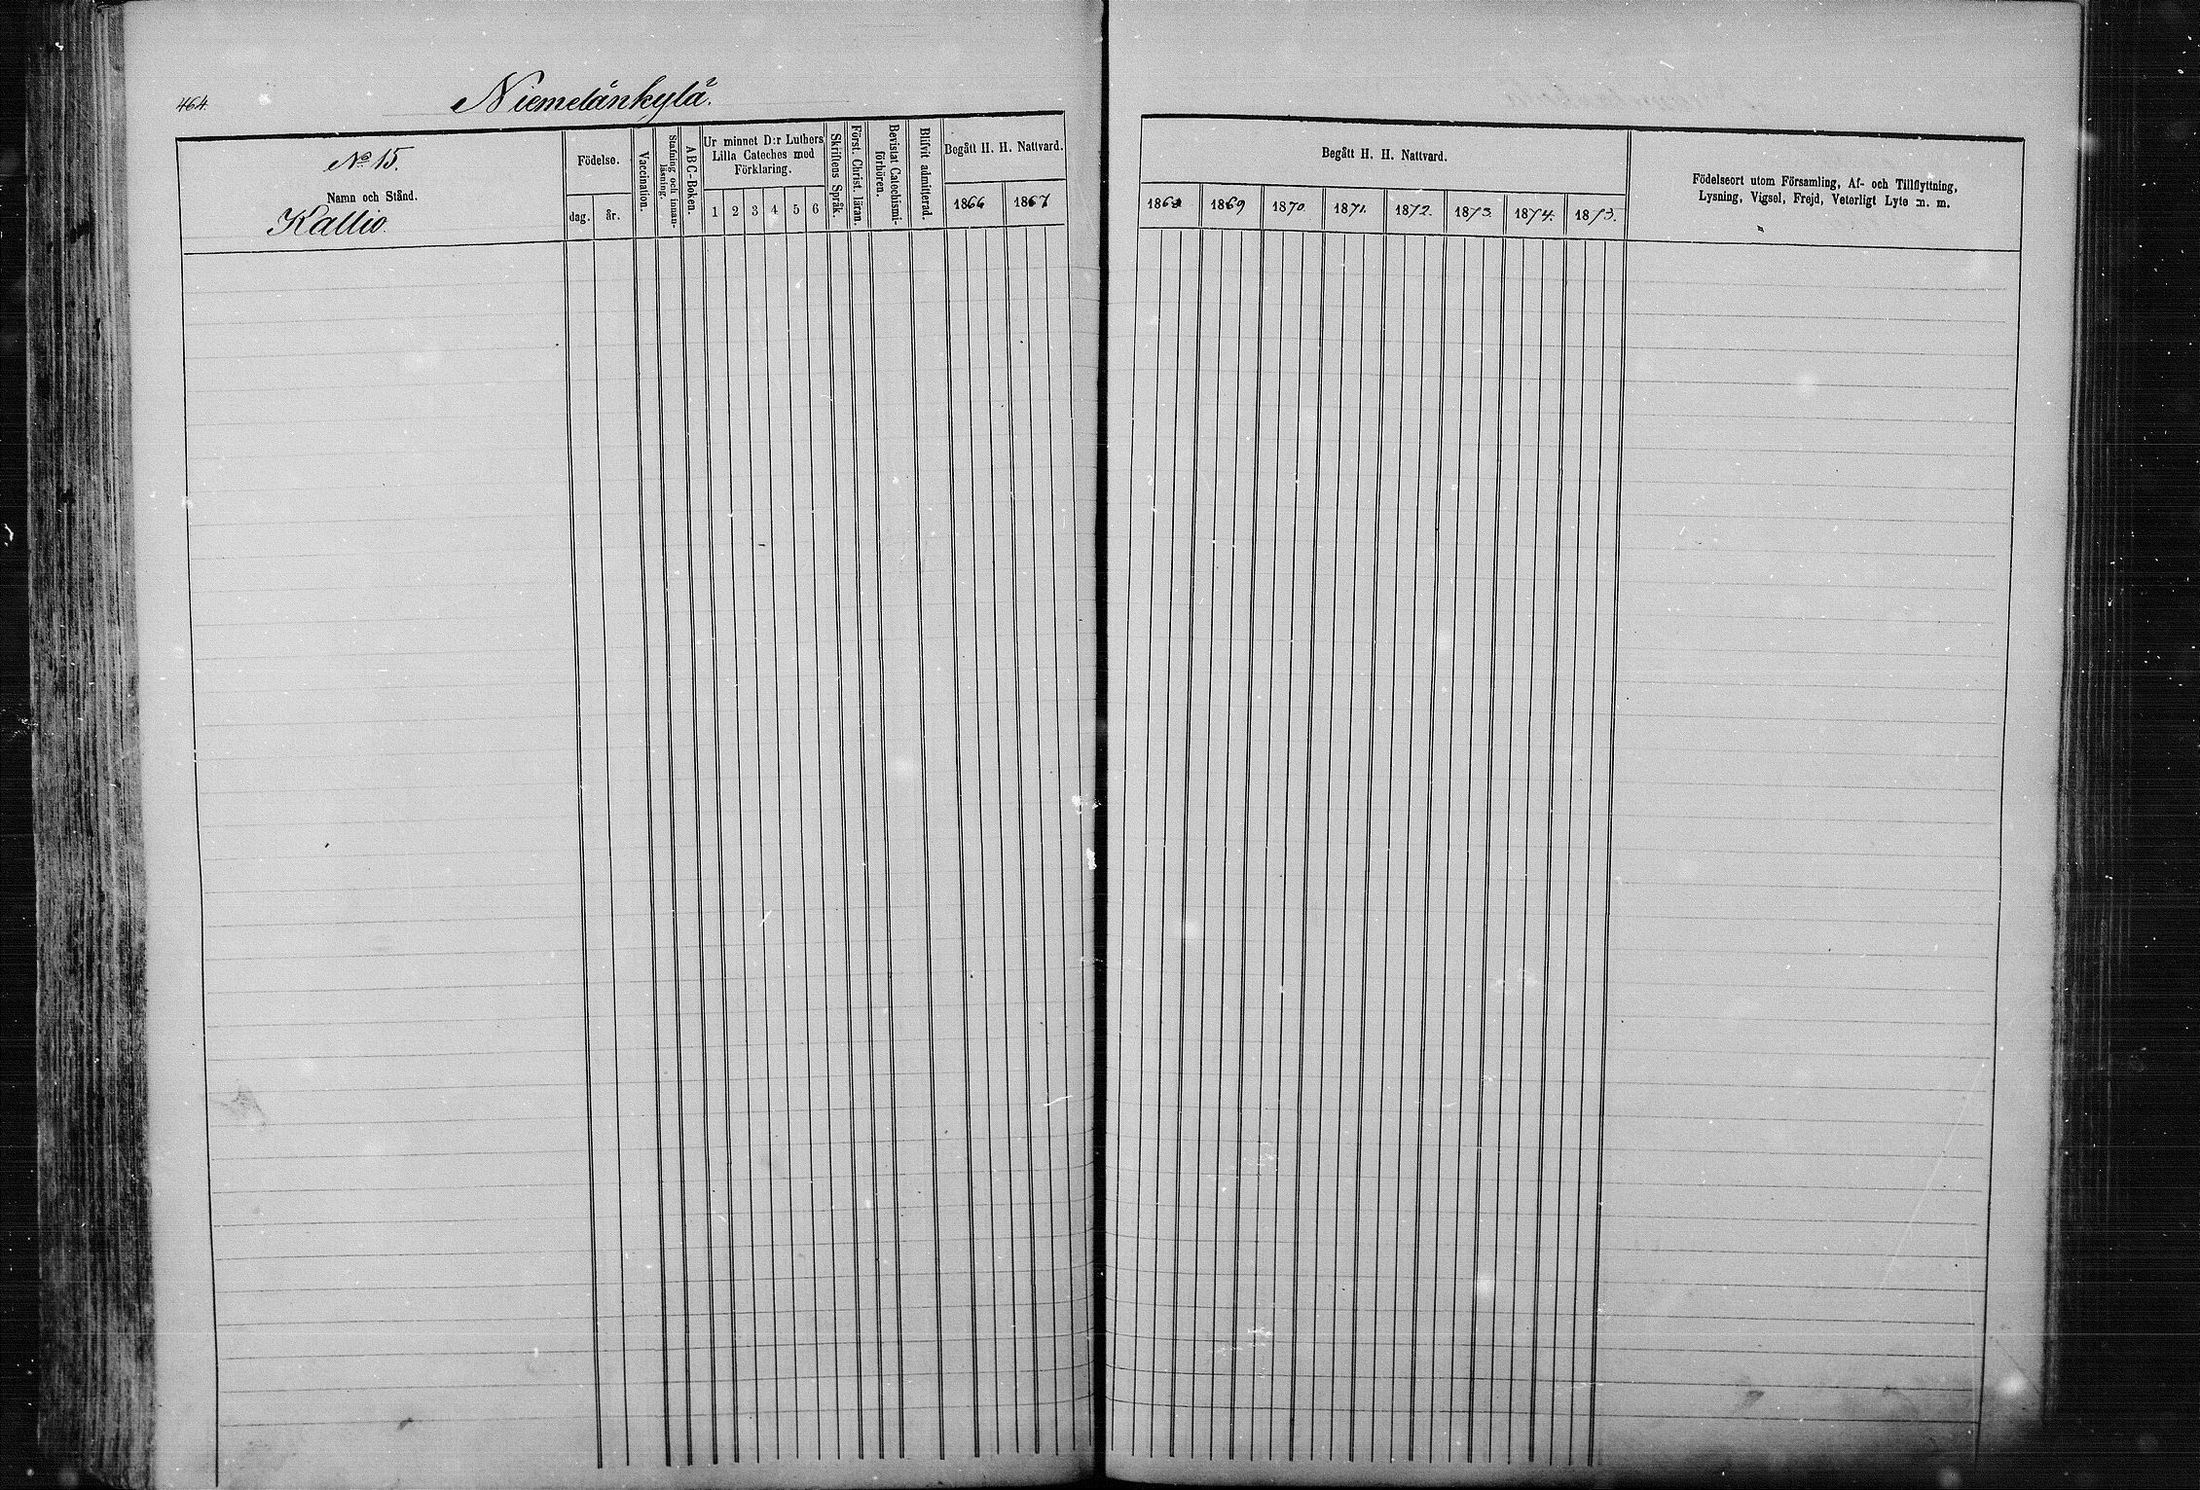 464.
Niemelänkylä.
No 15.
Namn och Stånd.
Kallio
Födelse.
dag.
år.
Vaccination.
Stafning och innan-
läsning.
ABC-Boken.
Ur minnet D:r Luthers
Lilla Cateches med
Förklaring.
1 2 3 4 5 6
Skriftens Språk.
Först. Christ. läran.
Bevistat Catechismi-
förhören.
Blifvit admitterad.
Begått H. H. Nattvard.
1866 1867
Begått H. H. Nattvard.
1868 1869 1870 1871. 1872. 1873. 1874. 1873.
Födelseort utom Församling, Af- och Tillflyttning,
Lysning, Vigsel, Frejd, Veterligt Lyte m. m.